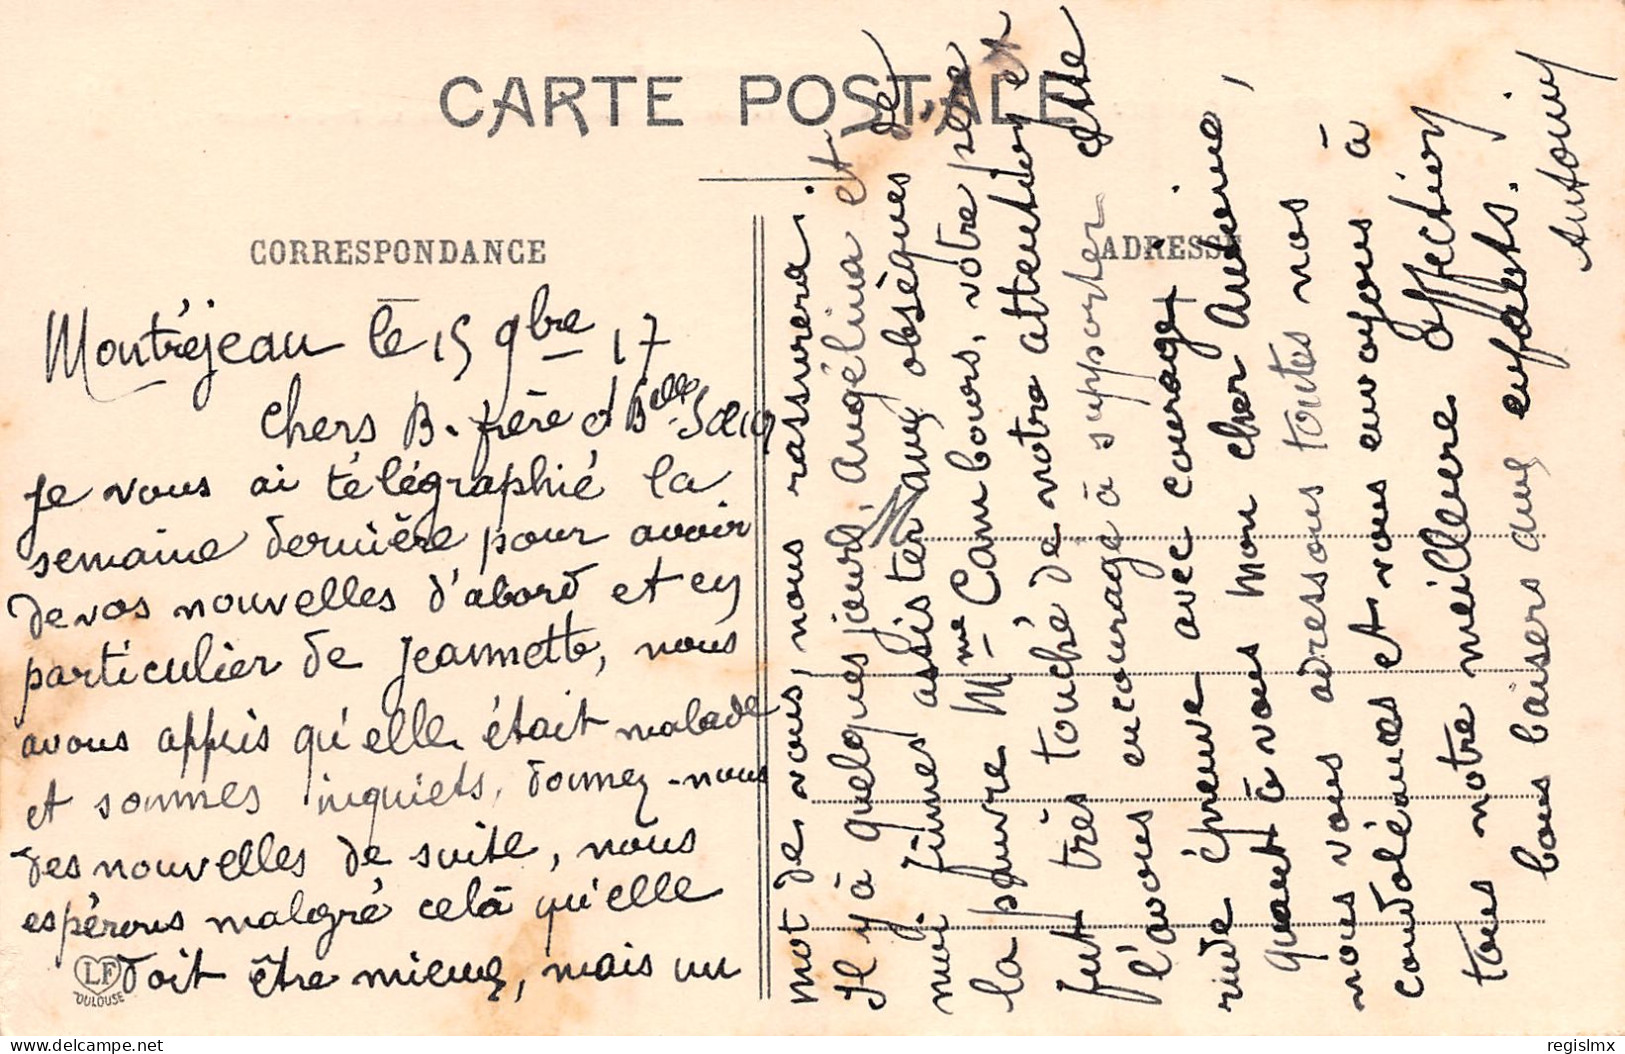 CARTE POSTALE
CORRESPONDANCE
ADRESSE
Montréjeau le 15 9bre 17
chers B. frère et Belle-Sœur
Je vous ai télégraphié la
semaine dernière pour avoir
de vos nouvelles d'abord et en
particulier de Jeannette, nous
avons appris qu'elle était malade
et sommes inquiets, donnez-nous
des nouvelles de suite, nous
espérons malgré celà qu'elle
doit être mieux, mais un
LF
TOULOUSE
mot de vous, nous rassurera.
Il y à quelques jours, Angélina et
moi fûmes assister aux obsèques de
la pauvre Mme Cambours, votre père
fut très touché de notre attention et
l'avons encouragé à supporter cette
rude épreuve avec courage.
quant à vous mon cher Antoine,
nous vous adressons toutes nos
condoléances et vous envoyons à
tous notre meilleure affection
bons baisers aux enfants.
Antonin
M
regislmx